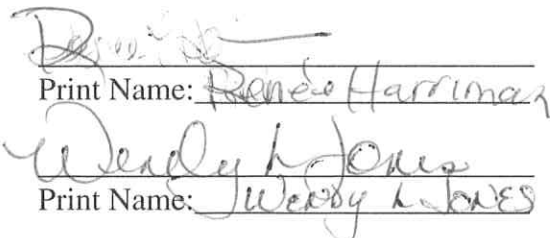 Print Name: Renée Harriman
Wendy L Jones
Print Name: Wendy L Jones